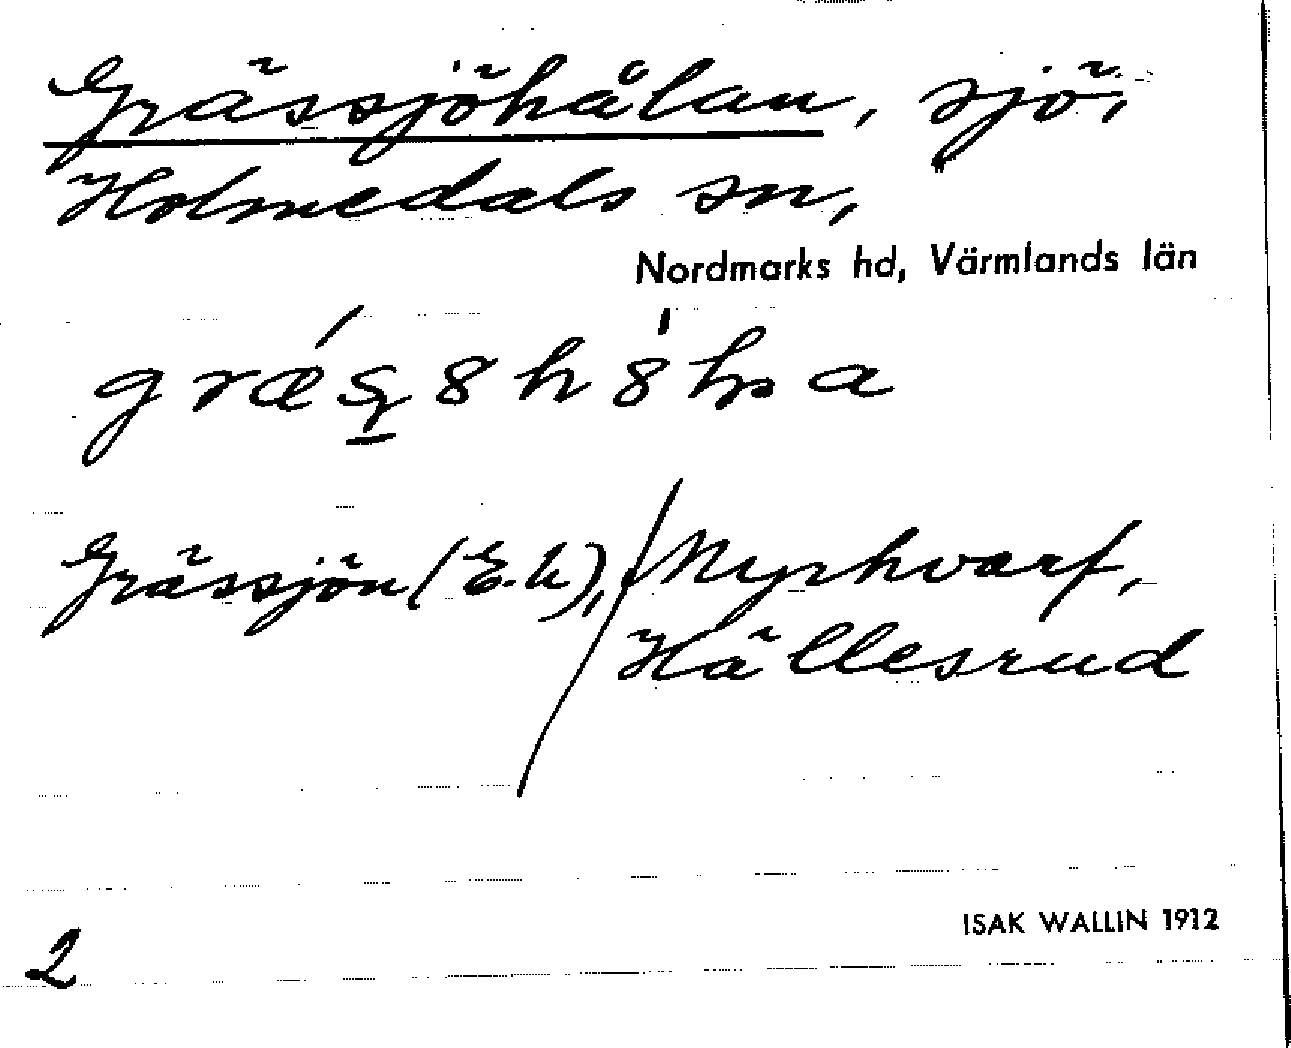 Grässjöhålan, sjö,
Holmedals sn,
Nordmarks hd, Värmlands län
Grässjön (E.k),/Nyrkvarf,
Hällesrud
ISAK WALLIN 1912
2